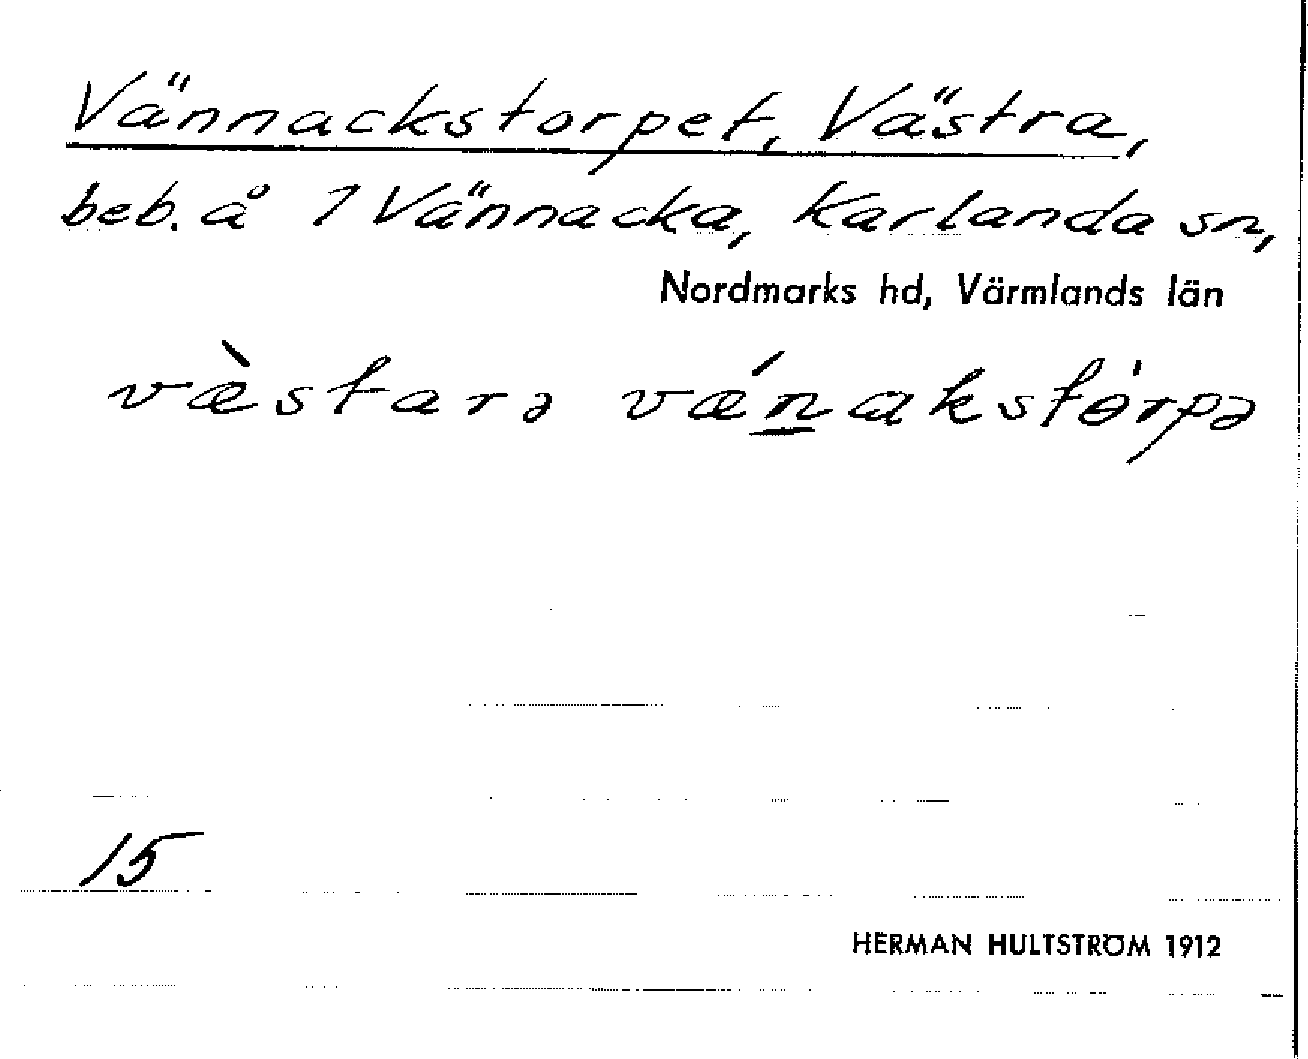 Vännackstorpet, Västra,
beb. å 1 Vännacka, Karlanda sn,
Nordmarks hd, Värmlands län
væ̀starə vǽn̲akstɵ́rpə
15
HERMAN HULTSTRÖM 1912